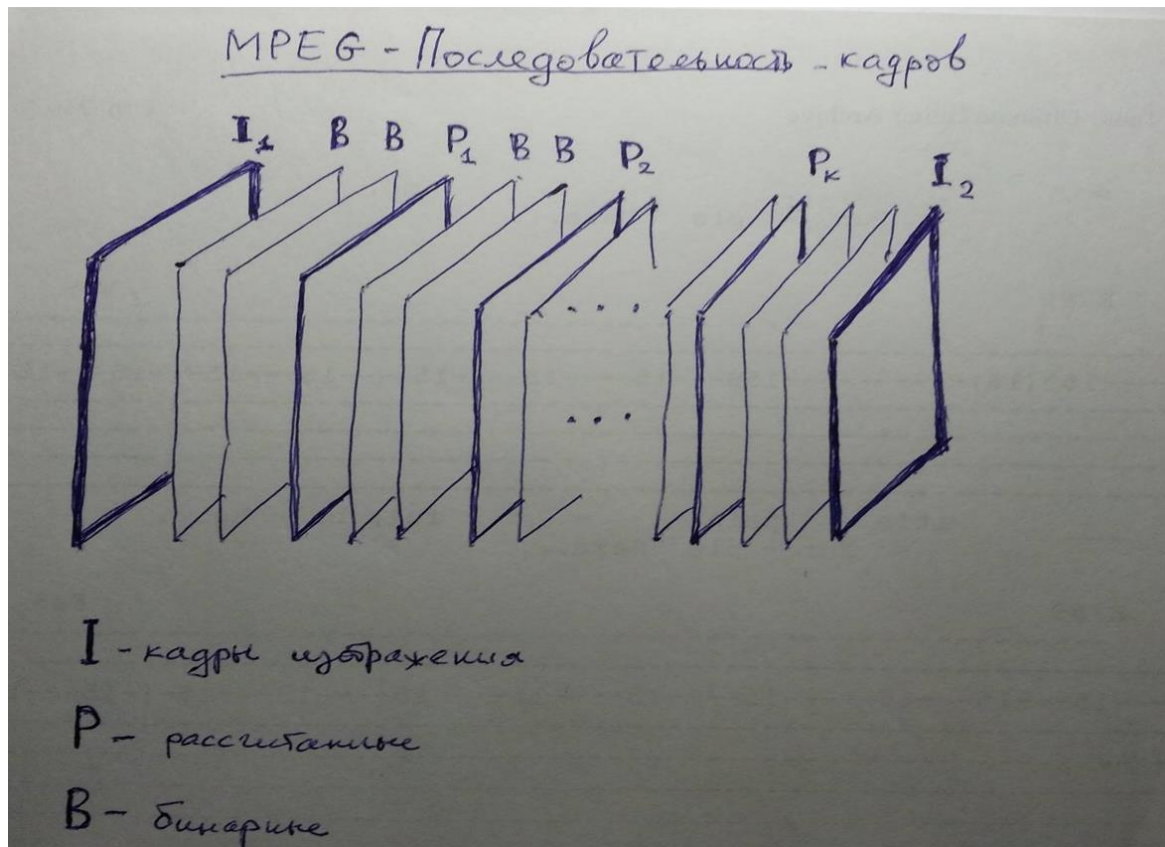 MPEG - Последовательность - кадров
I₁ B B P₁ B B P₂ Pₖ I₂
... 
...
I - кадры изображения
P - рассчитанные
B - бинарные